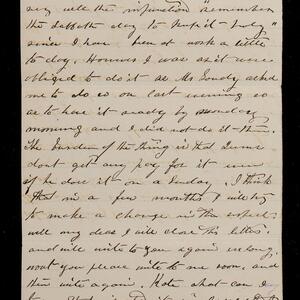 with the injunction "remember
the Sabbath day to keep it holy"
since I have been at work a little
to day. However I was as it were
obliged to do it as Mr. asked
me to do so on last evening so
as to have it ready by monday
morning and I did not do it then.
The burden of the thing is that I
dont get any pay for it even
if I do it on a Sunday. I think
that in a few months I will try
to make a change in this respect.
Well my dear I will close this letter.
and will write to you again ere long.
wont you please write to me soon, and
then write again. Kate what can I